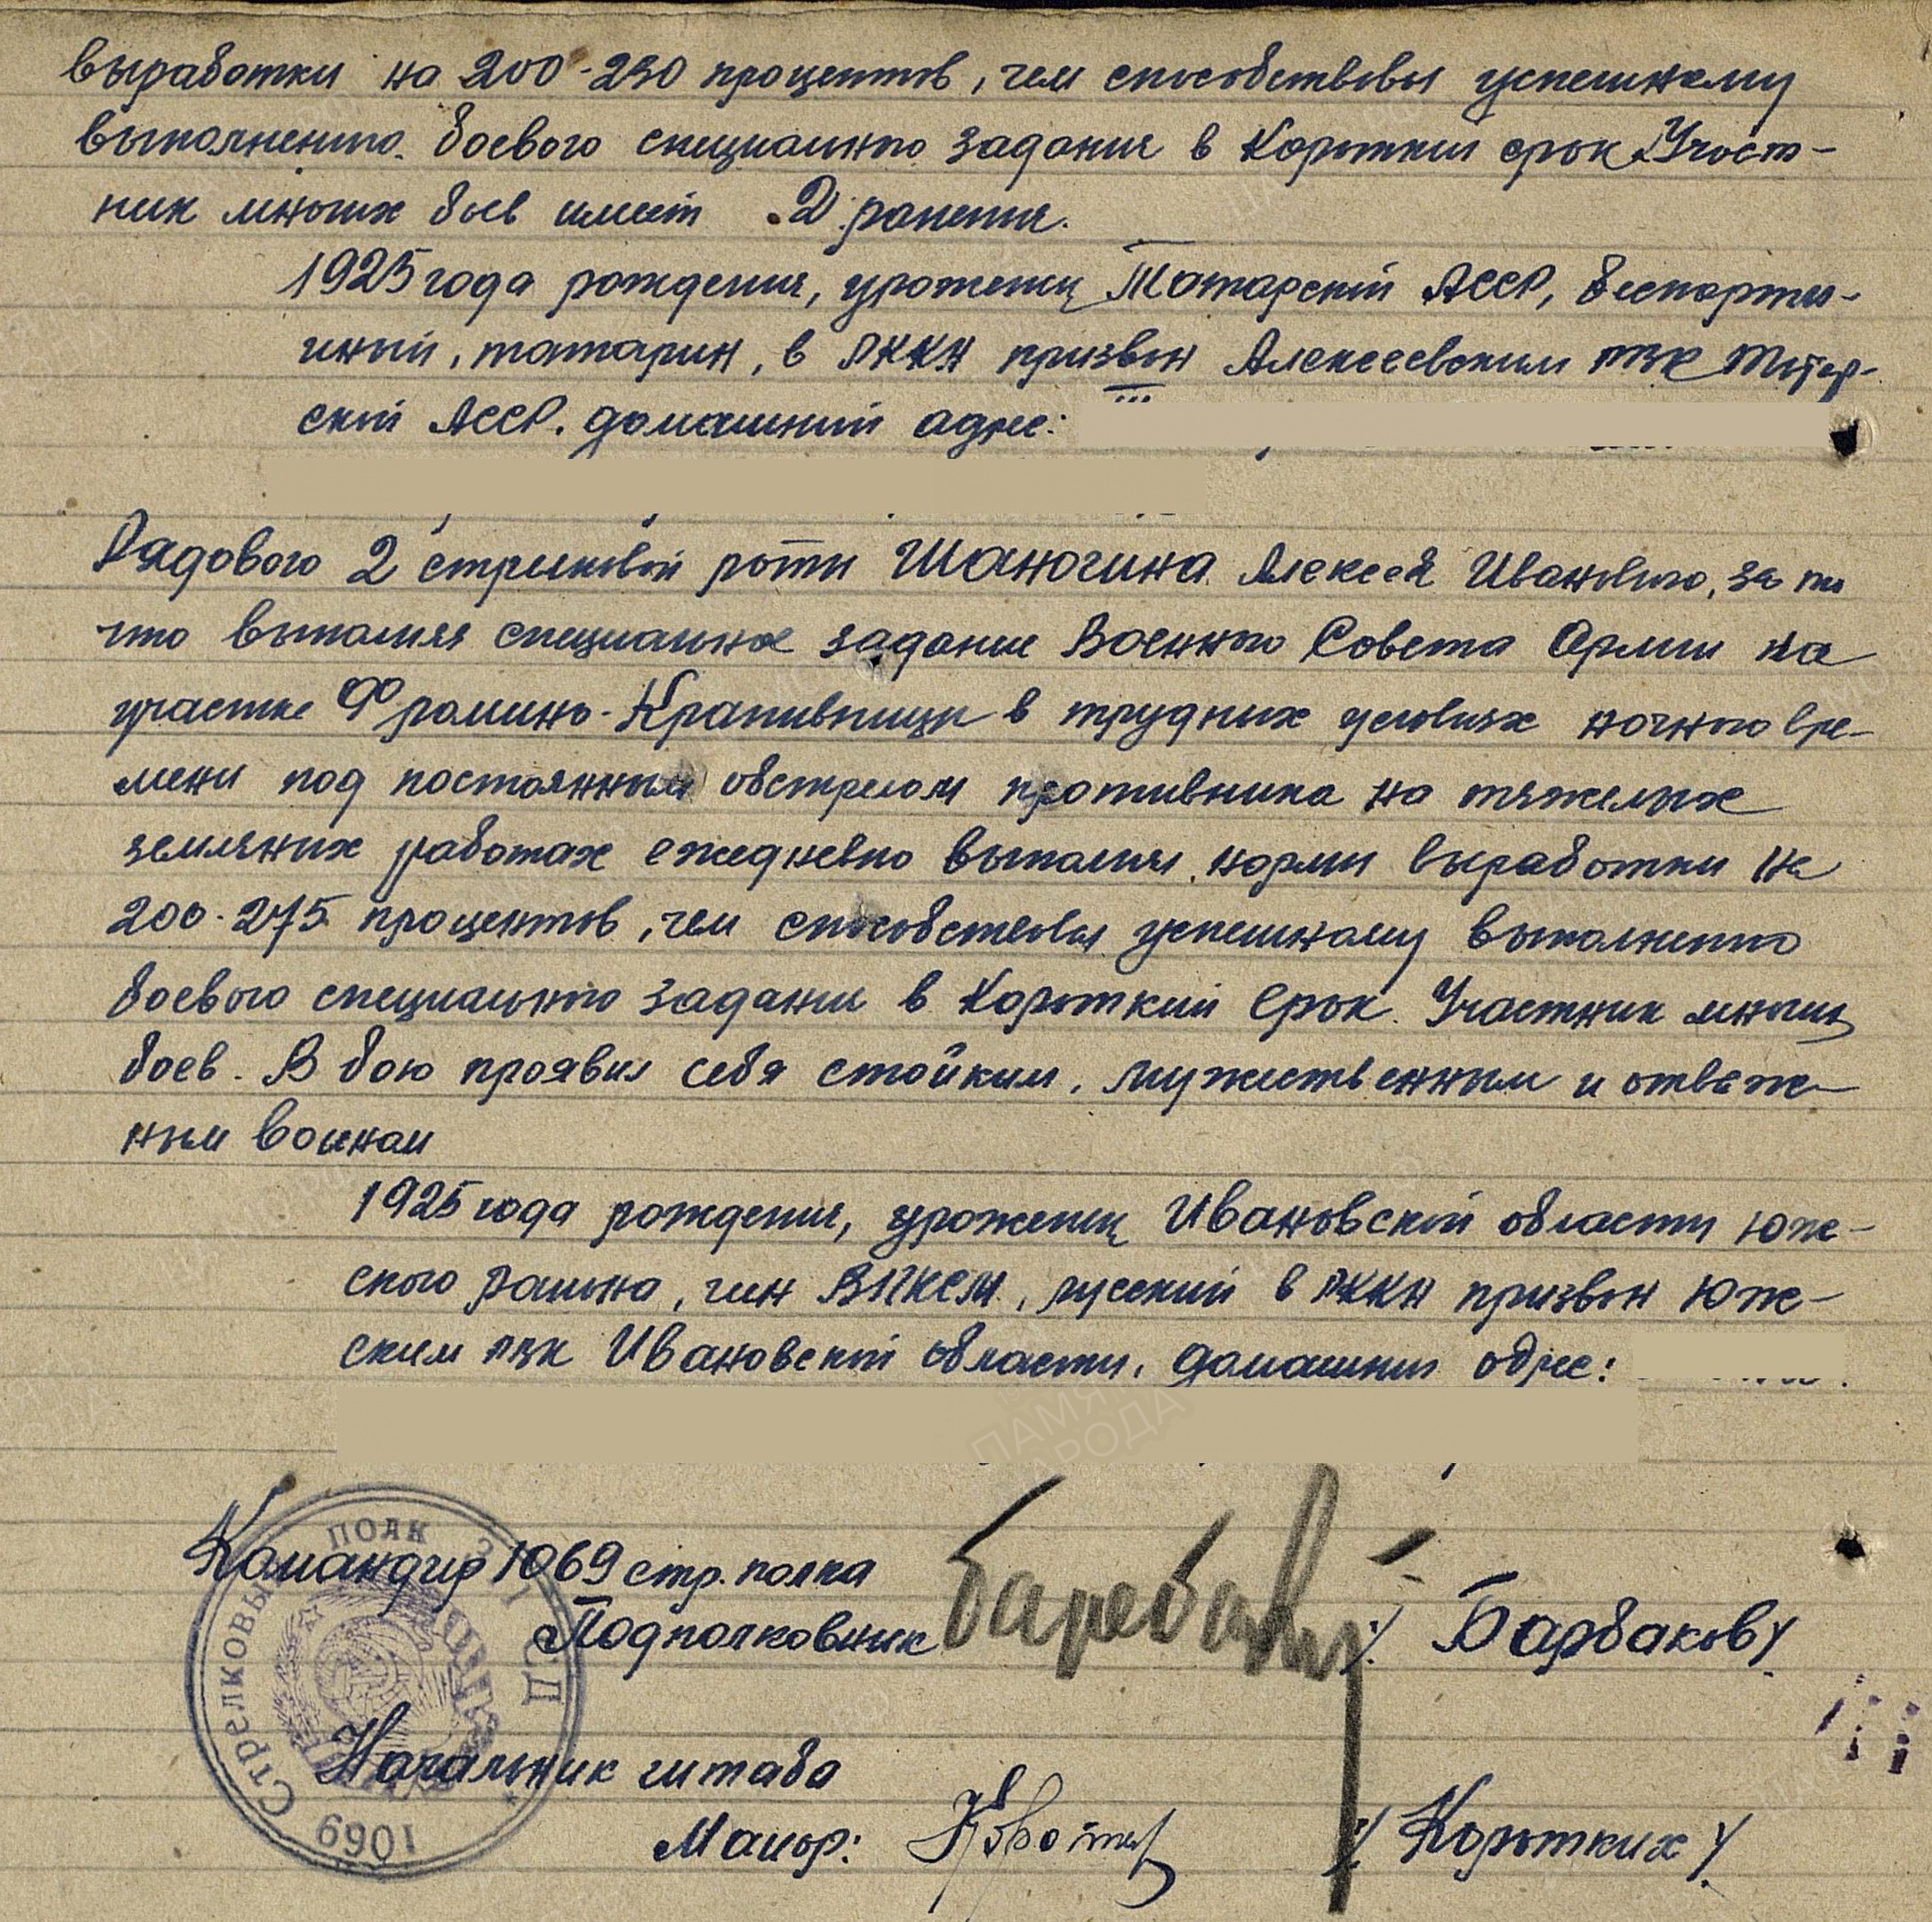 выработки на 200-250 процентов, чем способствовал успешному
выполнению боевого специального задания в короткий срок. Участ-
ник многих боев имеет 2 ранения.
1925 года рождения, уроженец Татарской АССР, беспартий-
иный, татарин, в РККА призван Алексеевским РВК Татар-
ской АССР. домашний адрес:
Рядового 2 стрелковой роты Шаногина Алексея Ивановича, за то
что выполняя специальное задание Военного Совета Армии на
участке Фромино-Крапивницы в трудных условиях ночного вре-
мени под постоянным обстрелом противника на тяжелых
земляных работах ежедневно выполнял нормы выработки на
200-275 процентов, чем способствовал успешному выполнению
боевого специального задания в короткий срок. Участник многих
боев. В бою проявил себя стойким, мужественным и отваж-
ным воином
1925 года рождения, уроженец Ивановской области Юж-
ского района, член ВЛКСМ, русский в РККА призван Юж-
ским РВК Ивановской области, домашний адрес:
Командир 1069 стр. полка
Подполковник Барбаков /Барбаков/
Начальник штаба
Майор: Коротких /Коротких/
1069 Стрелковый полк 311 СД
ПАМЯТЬ НАРОДА